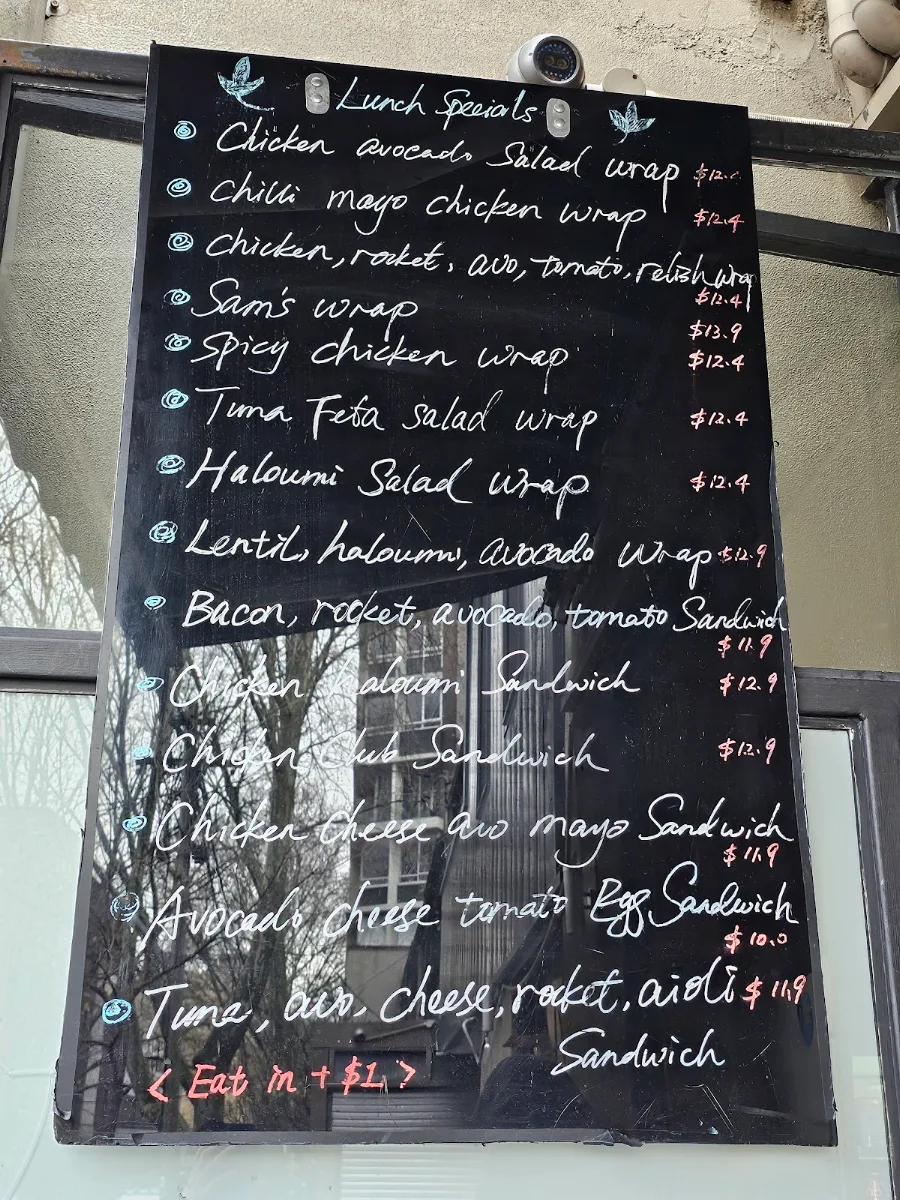 Lunch Specials
Chicken avocado Salad wrap
Chilli mayo chicken wrap $12.4
Chicken, rocket, avo, tomato, relish wrap
$12.4
Sam's wrap $13.9
Spicy chicken wrap $12.4
Tuna Feta salad wrap $12.4
Haloumi Salad wrap $12.4
Lentil, haloumi, avocado wrap $12.9
Bacon, rocket, avocado, tomato Sandwich
$11.9
Chicken haloumi Sandwich $12.9
Chicken Club Sandwich $12.9
Chicken cheese avo mayo Sandwich
$11.9
Avocado cheese tomato Egg Sandwich
$10.0
Tuna, avo, cheese, rocket, aioli $11.9
Sandwich
< Eat in + $1 >